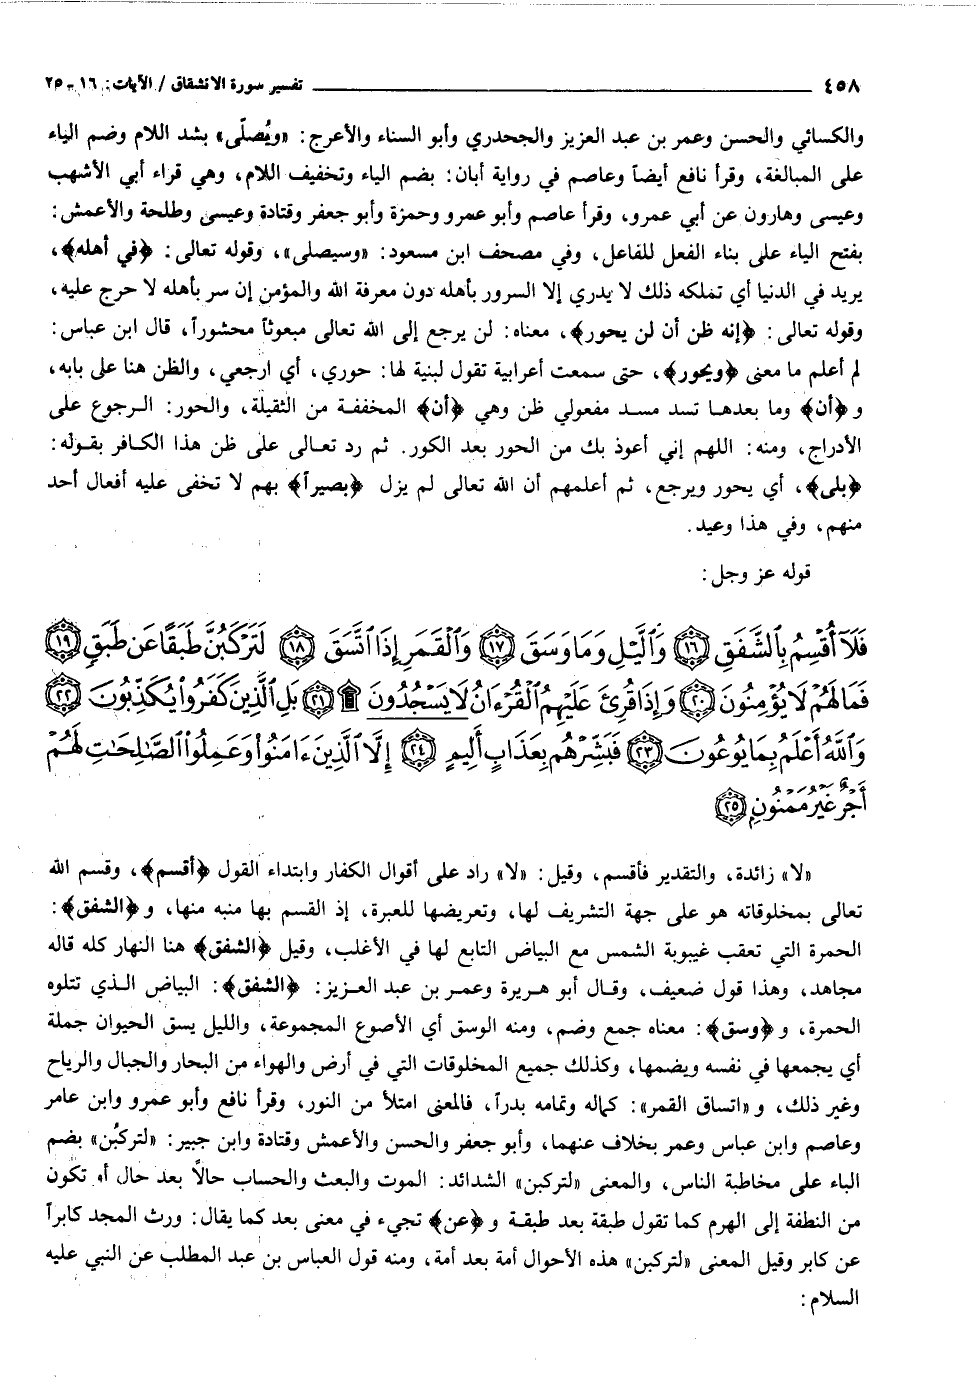 ٤٥٨ تفسير سورة الانشقاق / الآيات: ١٦ - ٢٥
والكسائي والحسن وعمر بن عبد العزيز والجحدري وأبو السناء والأعرج: «ويُصلّى» بشد اللام وضم الياء
على المبالغة، وقرأ نافع أيضاً وعاصم في رواية أبان: بضم الياء وتخفيف اللام، وهي قراء أبي الأشهب
وعيسى وهارون عن أبي عمرو، وقرأ عاصم وأبو عمرو وحمزة وأبو جعفر وقتادة وعيسى وطلحة والأعمش:
بفتح الياء على بناء الفعل للفاعل، وفي مصحف ابن مسعود: «وسيصلى»، وقوله تعالى: ﴿في أهله﴾،
يريد في الدنيا أي تملكه ذلك لا يدري إلا السرور بأهله دون معرفة الله والمؤمن إن سر بأهله لا حرج عليه،
وقوله تعالى: ﴿إنه ظن أن لن يحور﴾، معناه: لن يرجع إلى الله تعالى مبعوثاً محشوراً، قال ابن عباس:
لم أعلم ما معنى ﴿ويحور﴾، حتى سمعت أعرابية تقول لبنية لها: حوري، أي ارجعي، والظن هنا على بابه،
و ﴿أن﴾ وما بعدهـا تسد مسـد مفعولي ظن وهي ﴿أن﴾ المخففـة من الثقيلة، والحور: الـرجوع على
الأدراج، ومنه: اللهم إني أعوذ بك من الحور بعد الكور. ثم رد تعـالى على ظن هذا الكـافر بقـوله:
﴿بلى﴾، أي يحور ويرجع، ثم أعلمهم أن الله تعالى لم يزل ﴿بصيراً﴾ بهم لا تخفى عليه أفعال أحد
منهم، وفي هذا وعيد.
قوله عز وجل:
فَلَآ أُقْسِمُ بِٱلشَّفَقِ ١٦ وَٱلَّيْلِ وَمَا وَسَقَ ١٧ وَٱلْقَمَرِ إِذَا ٱتَّسَقَ ١٨ لَتَرْكَبُنَّ طَبَقًا عَن طَبَقٍ ١٩
فَمَا لَهُمْ لَا يُؤْمِنُونَ ٢٠ وَإِذَا قُرِئَ عَلَيْهِمُ ٱلْقُرْءَانُ لَا يَسْجُدُونَ ۩ ٢١ بَلِ ٱلَّذِينَ كَفَرُوا۟ يُكَذِّبُونَ ٢٢
وَٱللَّهُ أَعْلَمُ بِمَا يُوعُونَ ٢٣ فَبَشِّرْهُم بِعَذَابٍ أَلِيمٍ ٢٤ إِلَّا ٱلَّذِينَ ءَامَنُوا۟ وَعَمِلُوا۟ ٱلصَّٰلِحَٰتِ لَهُمْ
أَجْرٌ غَيْرُ مَمْنُونٍ ٢٥
«لا» زائدة، والتقدير فأقسم، وقيل: «لا» راد على أقوال الكفار وابتداء القول ﴿أقسم﴾، وقسم الله
تعالى بمخلوقاته هو على جهة التشريف لها، وتعريضها للعبرة، إذ القسم بها منبه منها، و ﴿الشفق﴾:
الحمرة التي تعقب غيبوبة الشمس مع البياض التابع لها في الأغلب، وقيل ﴿الشفق﴾ هنا النهار كله قاله
مجاهد، وهذا قول ضعيف، وقـال أبو هـريرة وعمـر بن عبد العـزيز: ﴿الشفق﴾: البياض الـذي تتلوه
الحمرة، و ﴿وسق﴾: معناه جمع وضم، ومنه الوسق أي الأصوع المجموعة، والليل يسق الحيوان جملة
أي يجمعها في نفسه ويضمها، وكذلك جميع المخلوقات التي في أرض والهواء من البحار والجبال والرياح
وغير ذلك، و «اتساق القمر»: كماله وتمامه بدراً، فالمعنى امتلأ من النور، وقرأ نافع وأبو عمرو وابن عامر
وعاصم وابن عباس وعمر بخلاف عنهما، وأبو جعفر والحسن والأعمش وقتادة وابن جبير: «لتركبُن» بضم
الباء على مخاطبة الناس، والمعنى «لتركبن» الشدائد: الموت والبعث والحساب حالاً بعد حال أو تكون
من النطفة إلى الهرم كما تقول طبقة بعد طبقـة و ﴿عن﴾ تجيء في معنى بعد كما يقال: ورث المجد كابراً
عن كابر وقيل المعنى «لتركبن» هذه الأحوال أمة بعد أمة، ومنه قول العباس بن عبد المطلب عن النبي عليه
السلام: